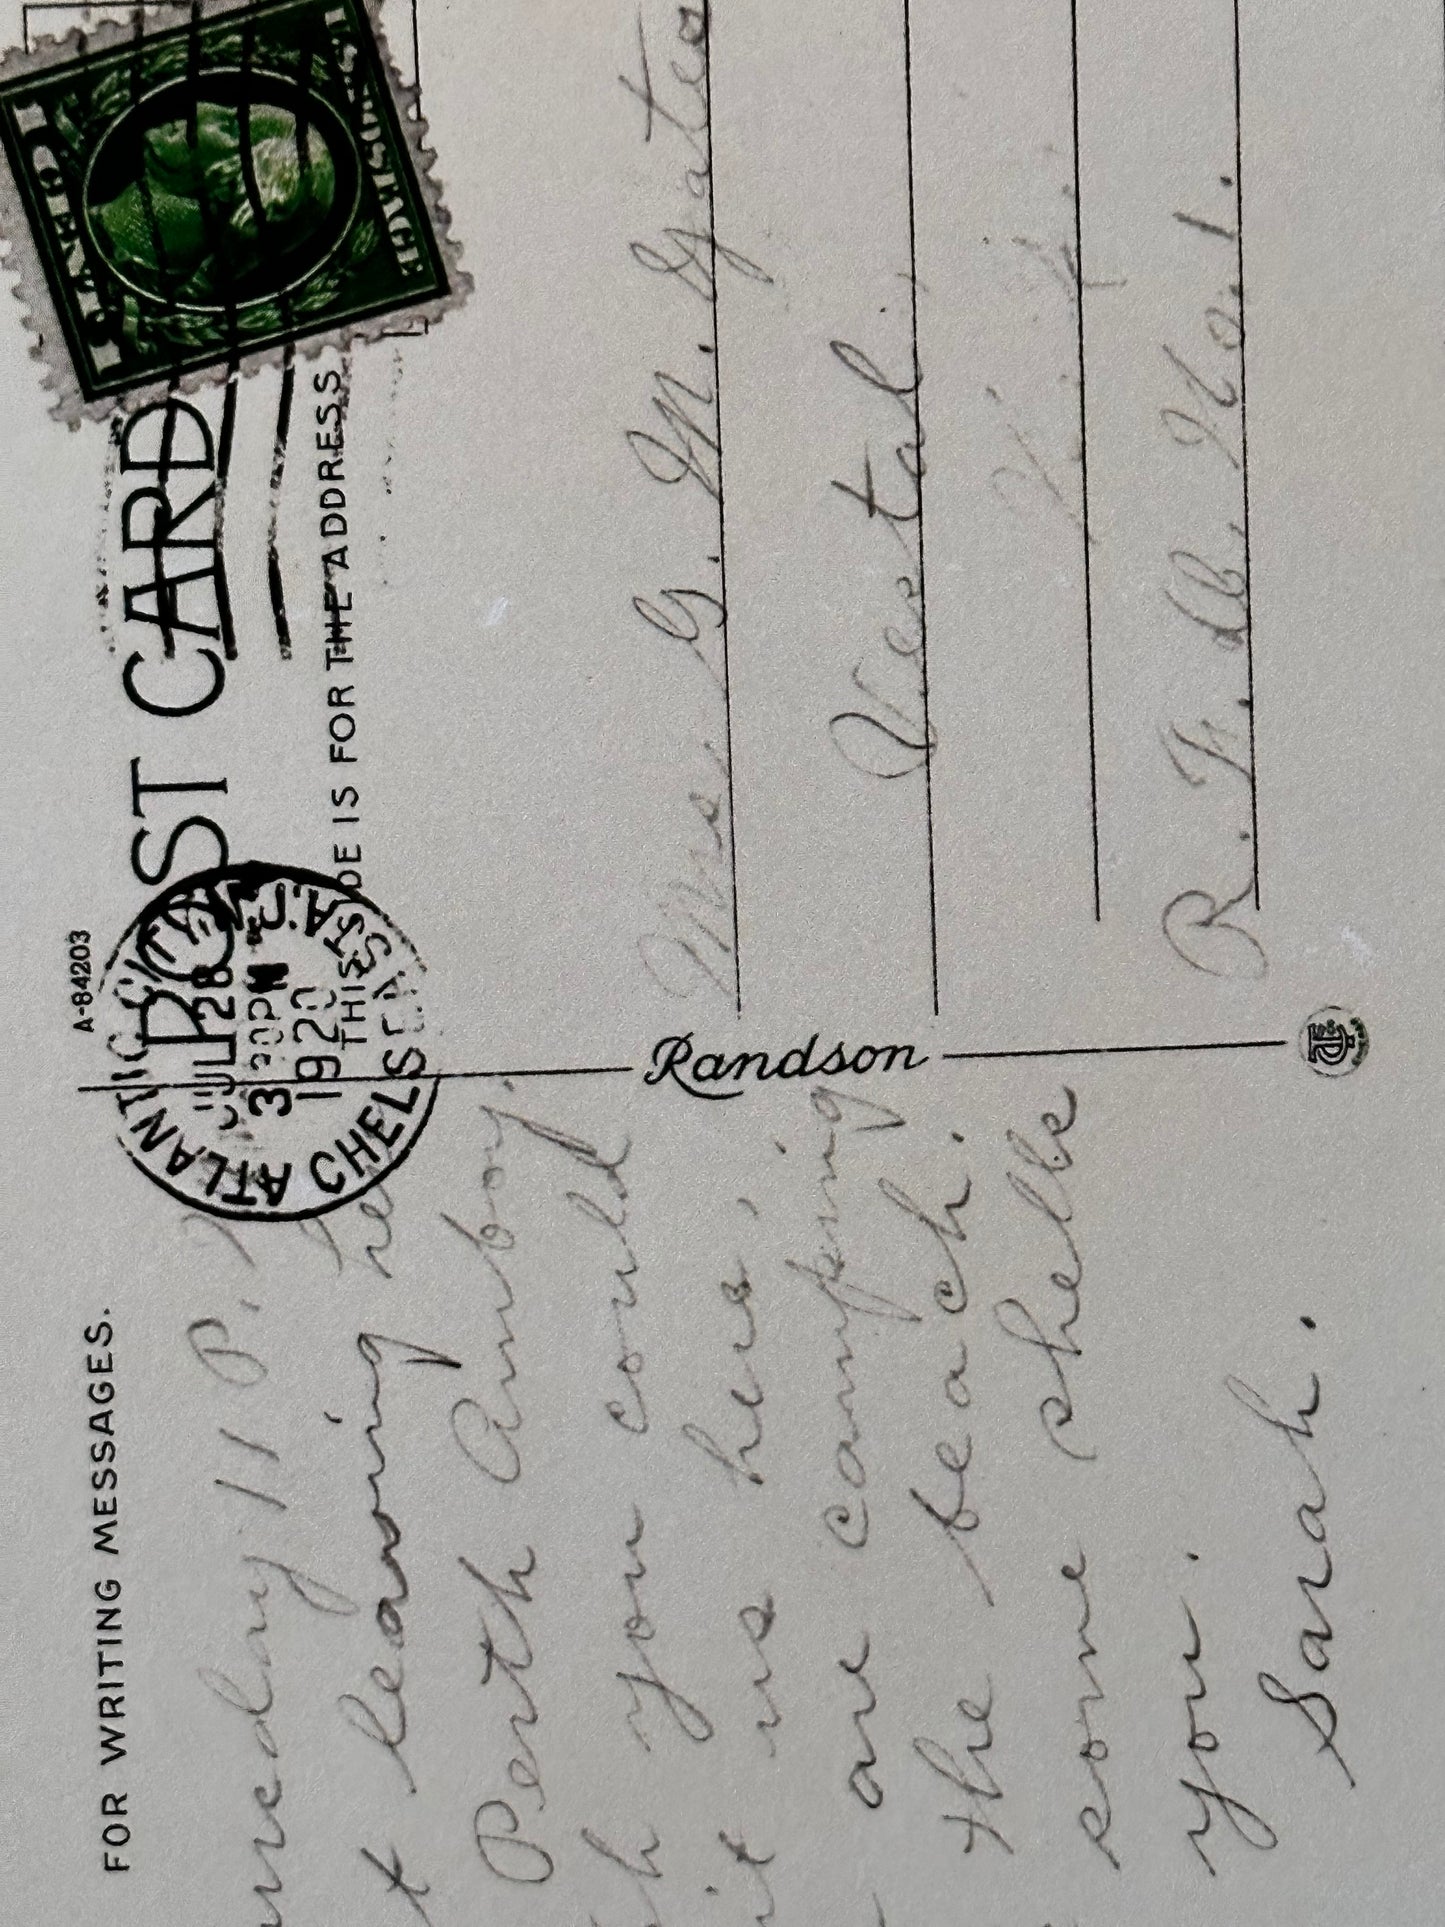 A-84203
FOR WRITING MESSAGES.
POST CARD
THIS SIDE IS FOR THE ADDRESS
1 CENT 1
U.S. POSTAGE
ATLANTIC CITY N.J.
JUL 28
3 30 PM
1920
CHELSEA STA.
nesday 11 P.
t leaving here
Perth Amboy.
sh you could
it us here,
are camping
the beach.
some shells
you.
Sarah.
Randson
Mrs. G. M. Yates
Vestal,
N. Y.
R. F. D. No. 1.